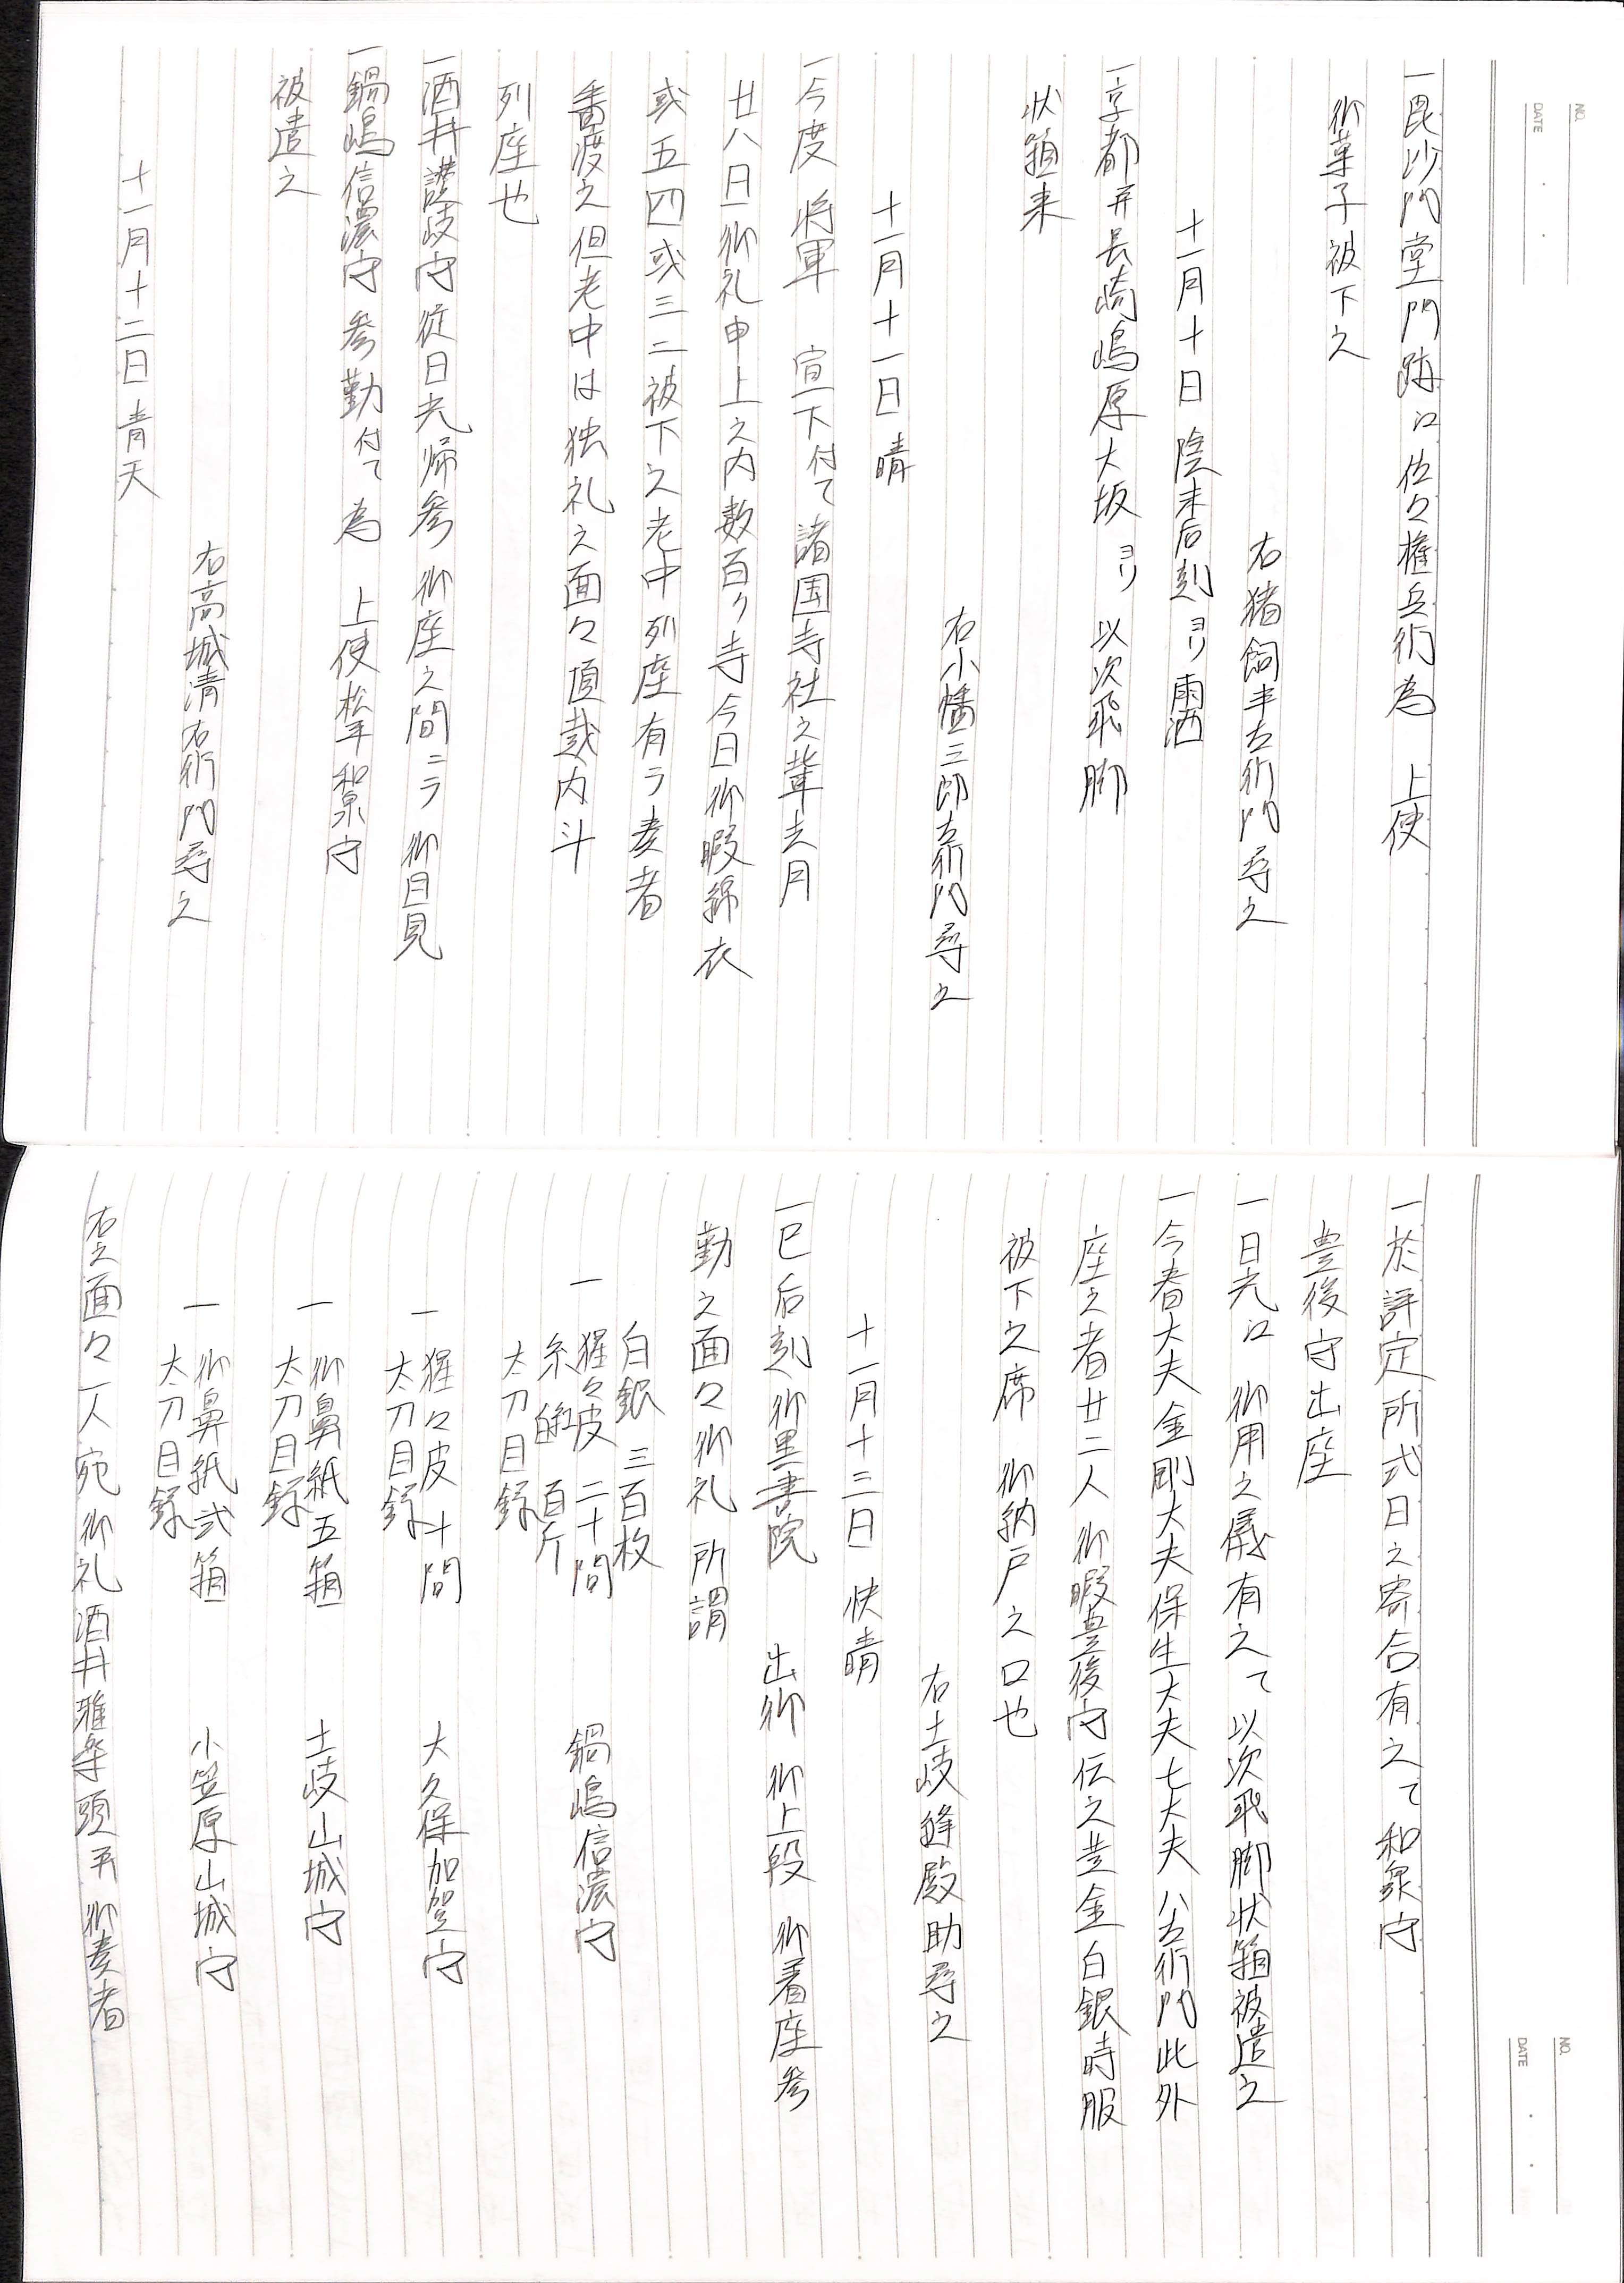 NO.
DATE
一毘沙門堂門跡江佐々権兵衛為　上使
御菓子被下之
右猪飼半左衛門尋之
十一月十日　陰未后刻ヨリ雨洒
一京都并長崎嶋原大坂ヨリ　以次飛脚
状箱来
右小幡三郎左衛門尋之
十一月十一日　晴
一今度　将軍　宣下付て諸国寺社之輩去月
廿八日御礼申上之内数百ケ寺今日御暇綿衣
或五四或三二被下之老中列座有テ奏者
番渡之但老中は独礼之面々直裁内斗
列座也
一酒井讃岐守従日光帰参　御座之間ニテ御目見
一鍋嶋信濃守　参勤付て　為　上使松平和泉守
被遣之
右高城清右衛門尋之
十一月十二日　青天
NO.
DATE
一於評定所式日之寄合有之て和泉守
豊後守出座
一日光江　御用之儀有之て　以次飛脚状箱被遣之
一今春大夫金剛大夫保生大夫七大夫　八左衛門此外
座之者廿二人　御暇豊後守伝之黄金白銀時服
被下之席　御納戸之口也
右土岐縫殿助尋之
十一月十三日　快晴
一巳后刻御黒書院　出御　御上段　御着座参
勤之面々御礼　所謂
白銀　三百枚
一　猩々皮　二十間　鍋嶋信濃守
糸　百斤
太刀目録
一　猩々皮　十間　大久保加賀守
太刀目録
一　御鼻紙五箱　土岐山城守
太刀目録
一　御鼻紙弐箱　小笠原山城守
太刀目録
右之面々一人宛御礼　酒井雅楽頭并　御奏者